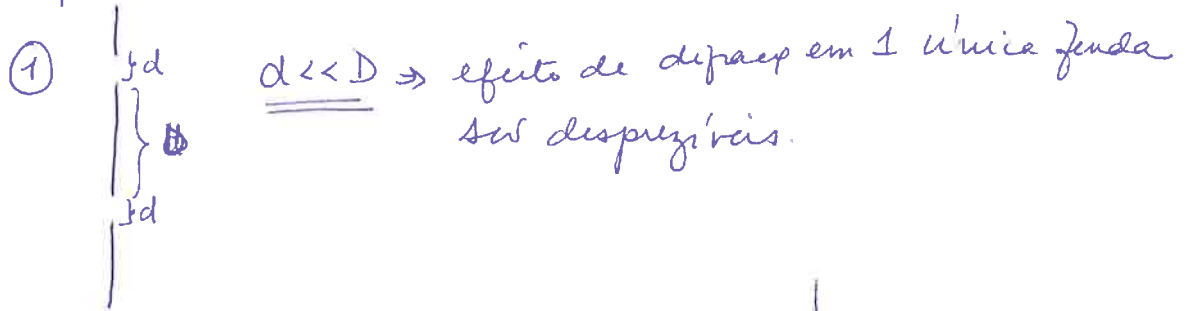 ① }d d<<D ⇒ efeito de difração em 1 única fenda
} D são desprezíveis.
}d